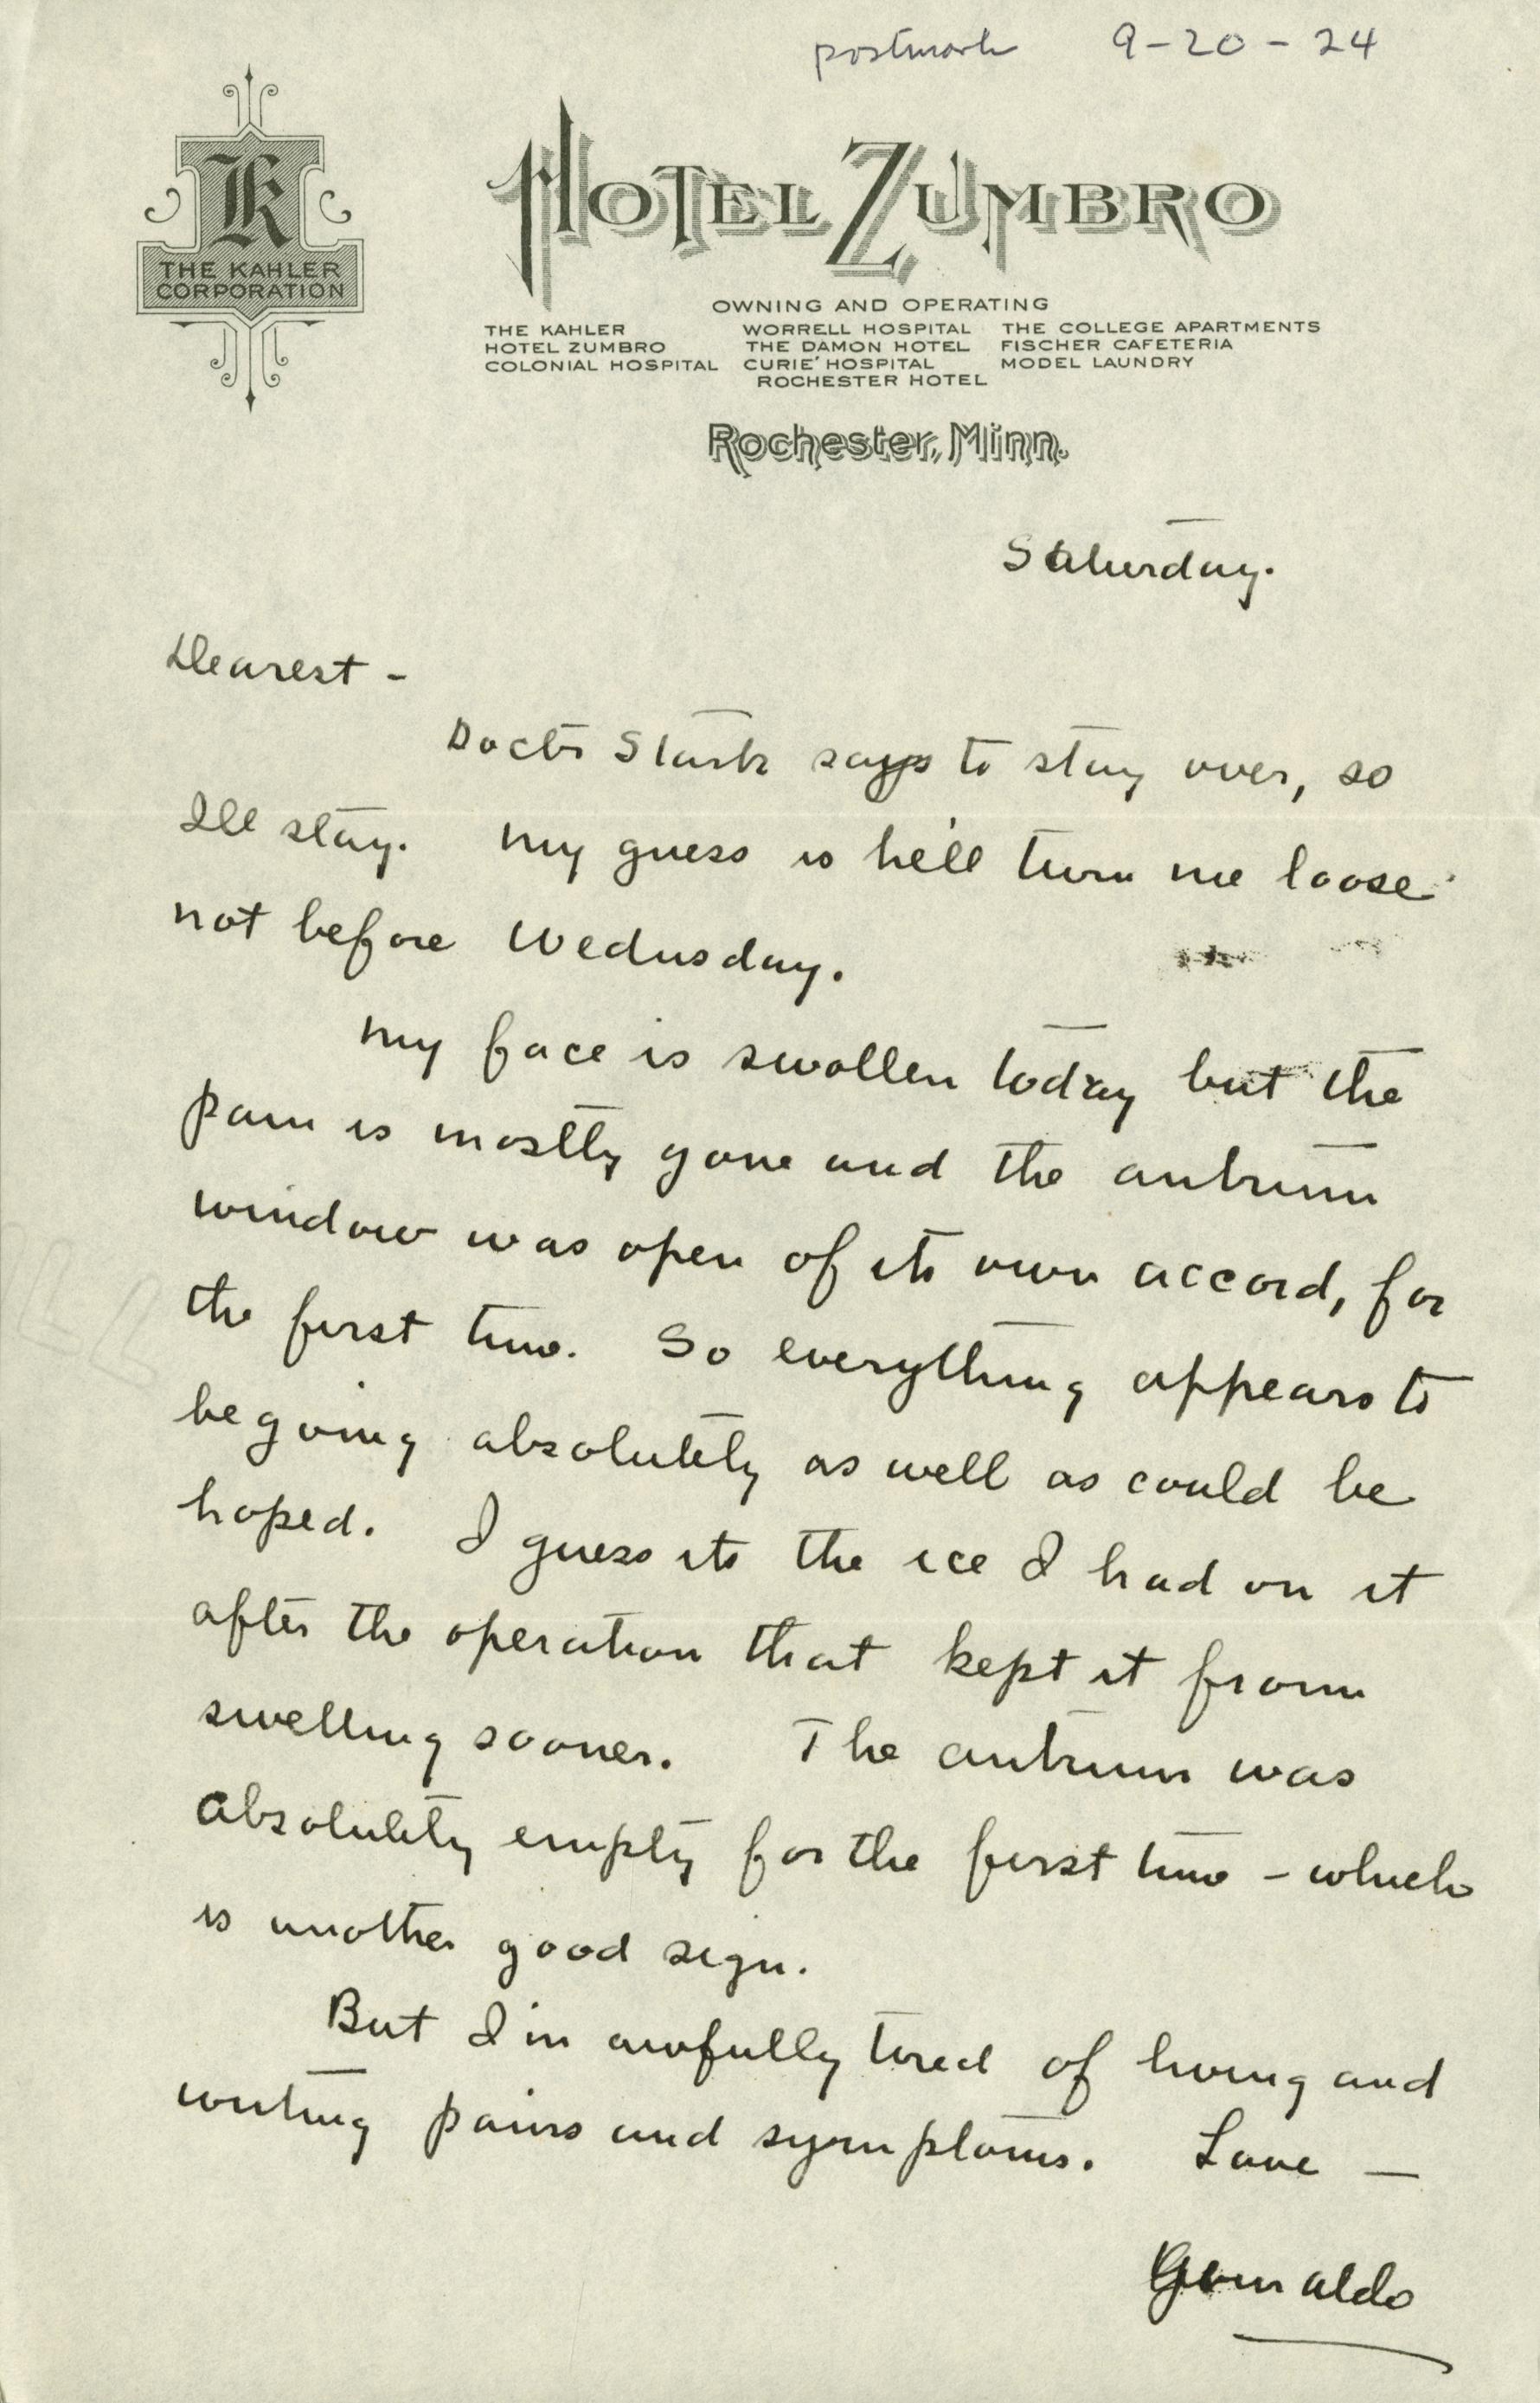 postmark 9-20-24
K
THE KAHLER
CORPORATION
HOTEL ZUMBRO
OWNING AND OPERATING
THE KAHLER WORRELL HOSPITAL THE COLLEGE APARTMENTS
HOTEL ZUMBRO THE DAMON HOTEL FISCHER CAFETERIA
COLONIAL HOSPITAL CURIE' HOSPITAL MODEL LAUNDRY
ROCHESTER HOTEL
Rochester, Minn.
Saturday.
Dearest -
Doctor Stark says to stay over, so
Ill stay. My guess is he'll turn me loose
not before Wednsday.
My face is swollen today but the
pain is mostly gone and the antrum
window was open of its own accord, for
the first time. So everything appears to
be going absolutely as well as could be
hoped. I guess its the ice I had on it
after the operation that kept it from
swelling sooner. The antrum was
absolutely empty for the first time - which
is another good sign.
But I'm awfully tired of living and
writing pains and symptoms. Love —